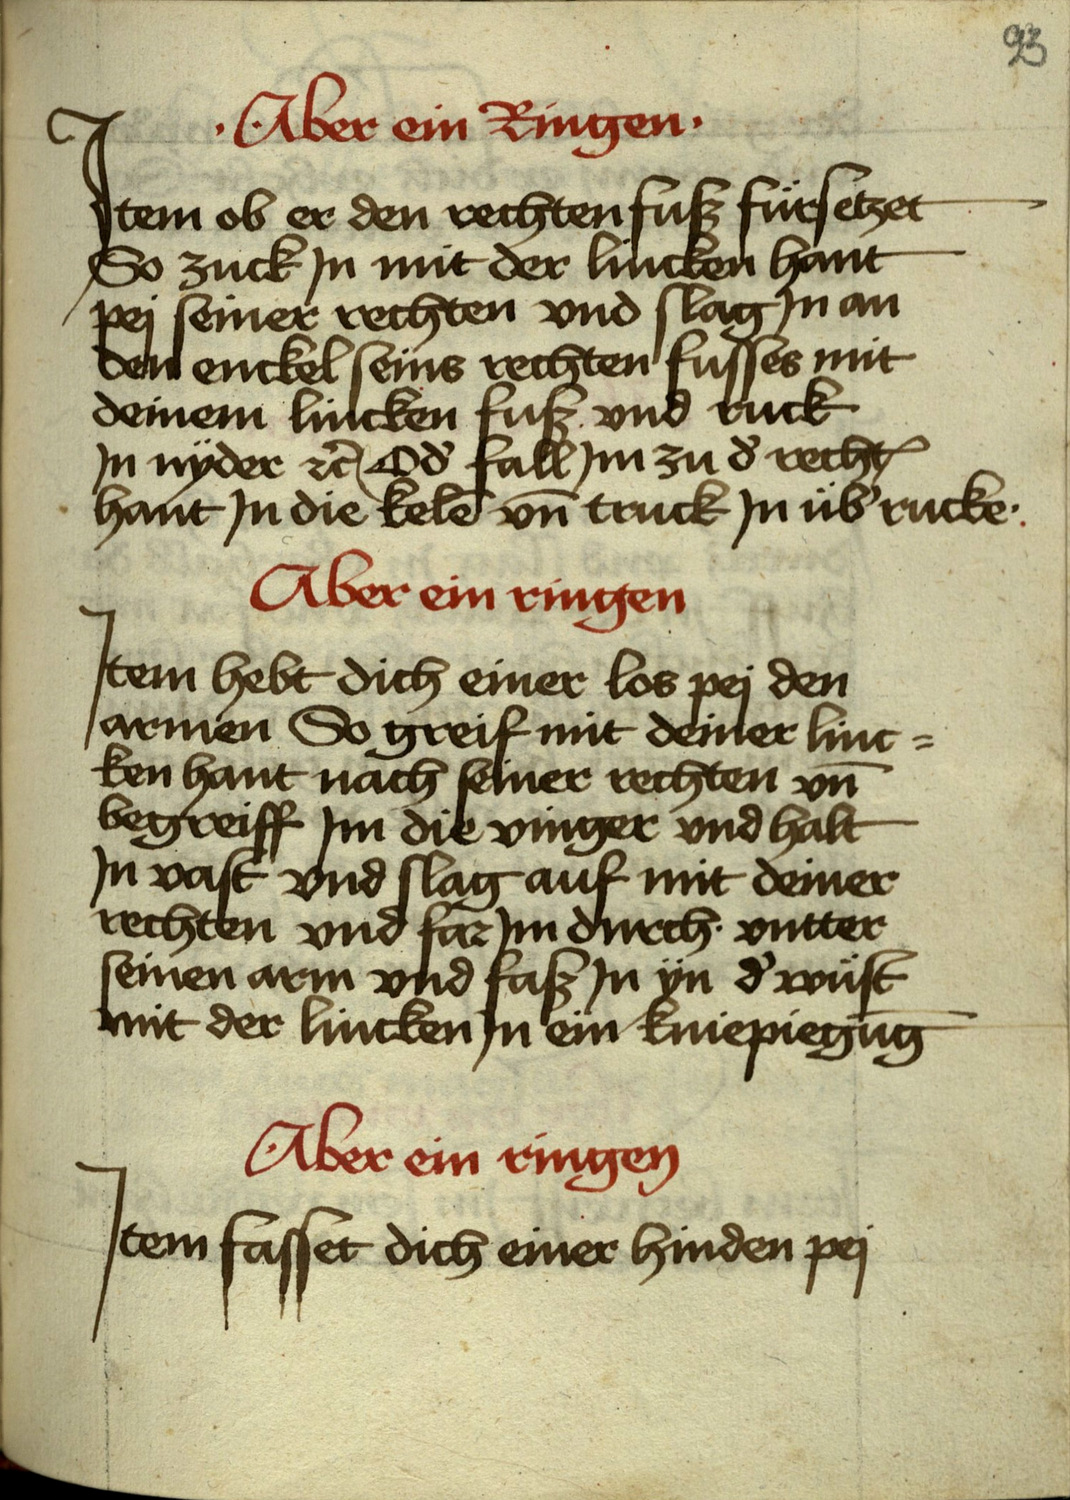 93
·Aber ein Ringen·
Item ob er den rechten fuß fürsetzet
So zuck In mit der lincken hant
pej seiner rechten vnd slag In an
den enckel seins rechten fusses mit
deinem lincken fuß vnd ruck
In nÿder ꝛc̃ Od' fall Im zu d' recht
hant In die kele vn̄ truck In üb' rucke·
Aber ein ringen
Item hebt dich einer los pej den
armen So greif mit deiner linc=
ken hant nach seiner rechten vn̄
begreiff Im die vinger vnd halt
In vast vnd slag auf mit deiner
rechten vnd far Im durch· vntter
seinen arm vnd faß In ÿn d' wüst
mit der lincken In ein kniepiegūg
·Aber ein ringen
Item fasset dich einer hinden pej